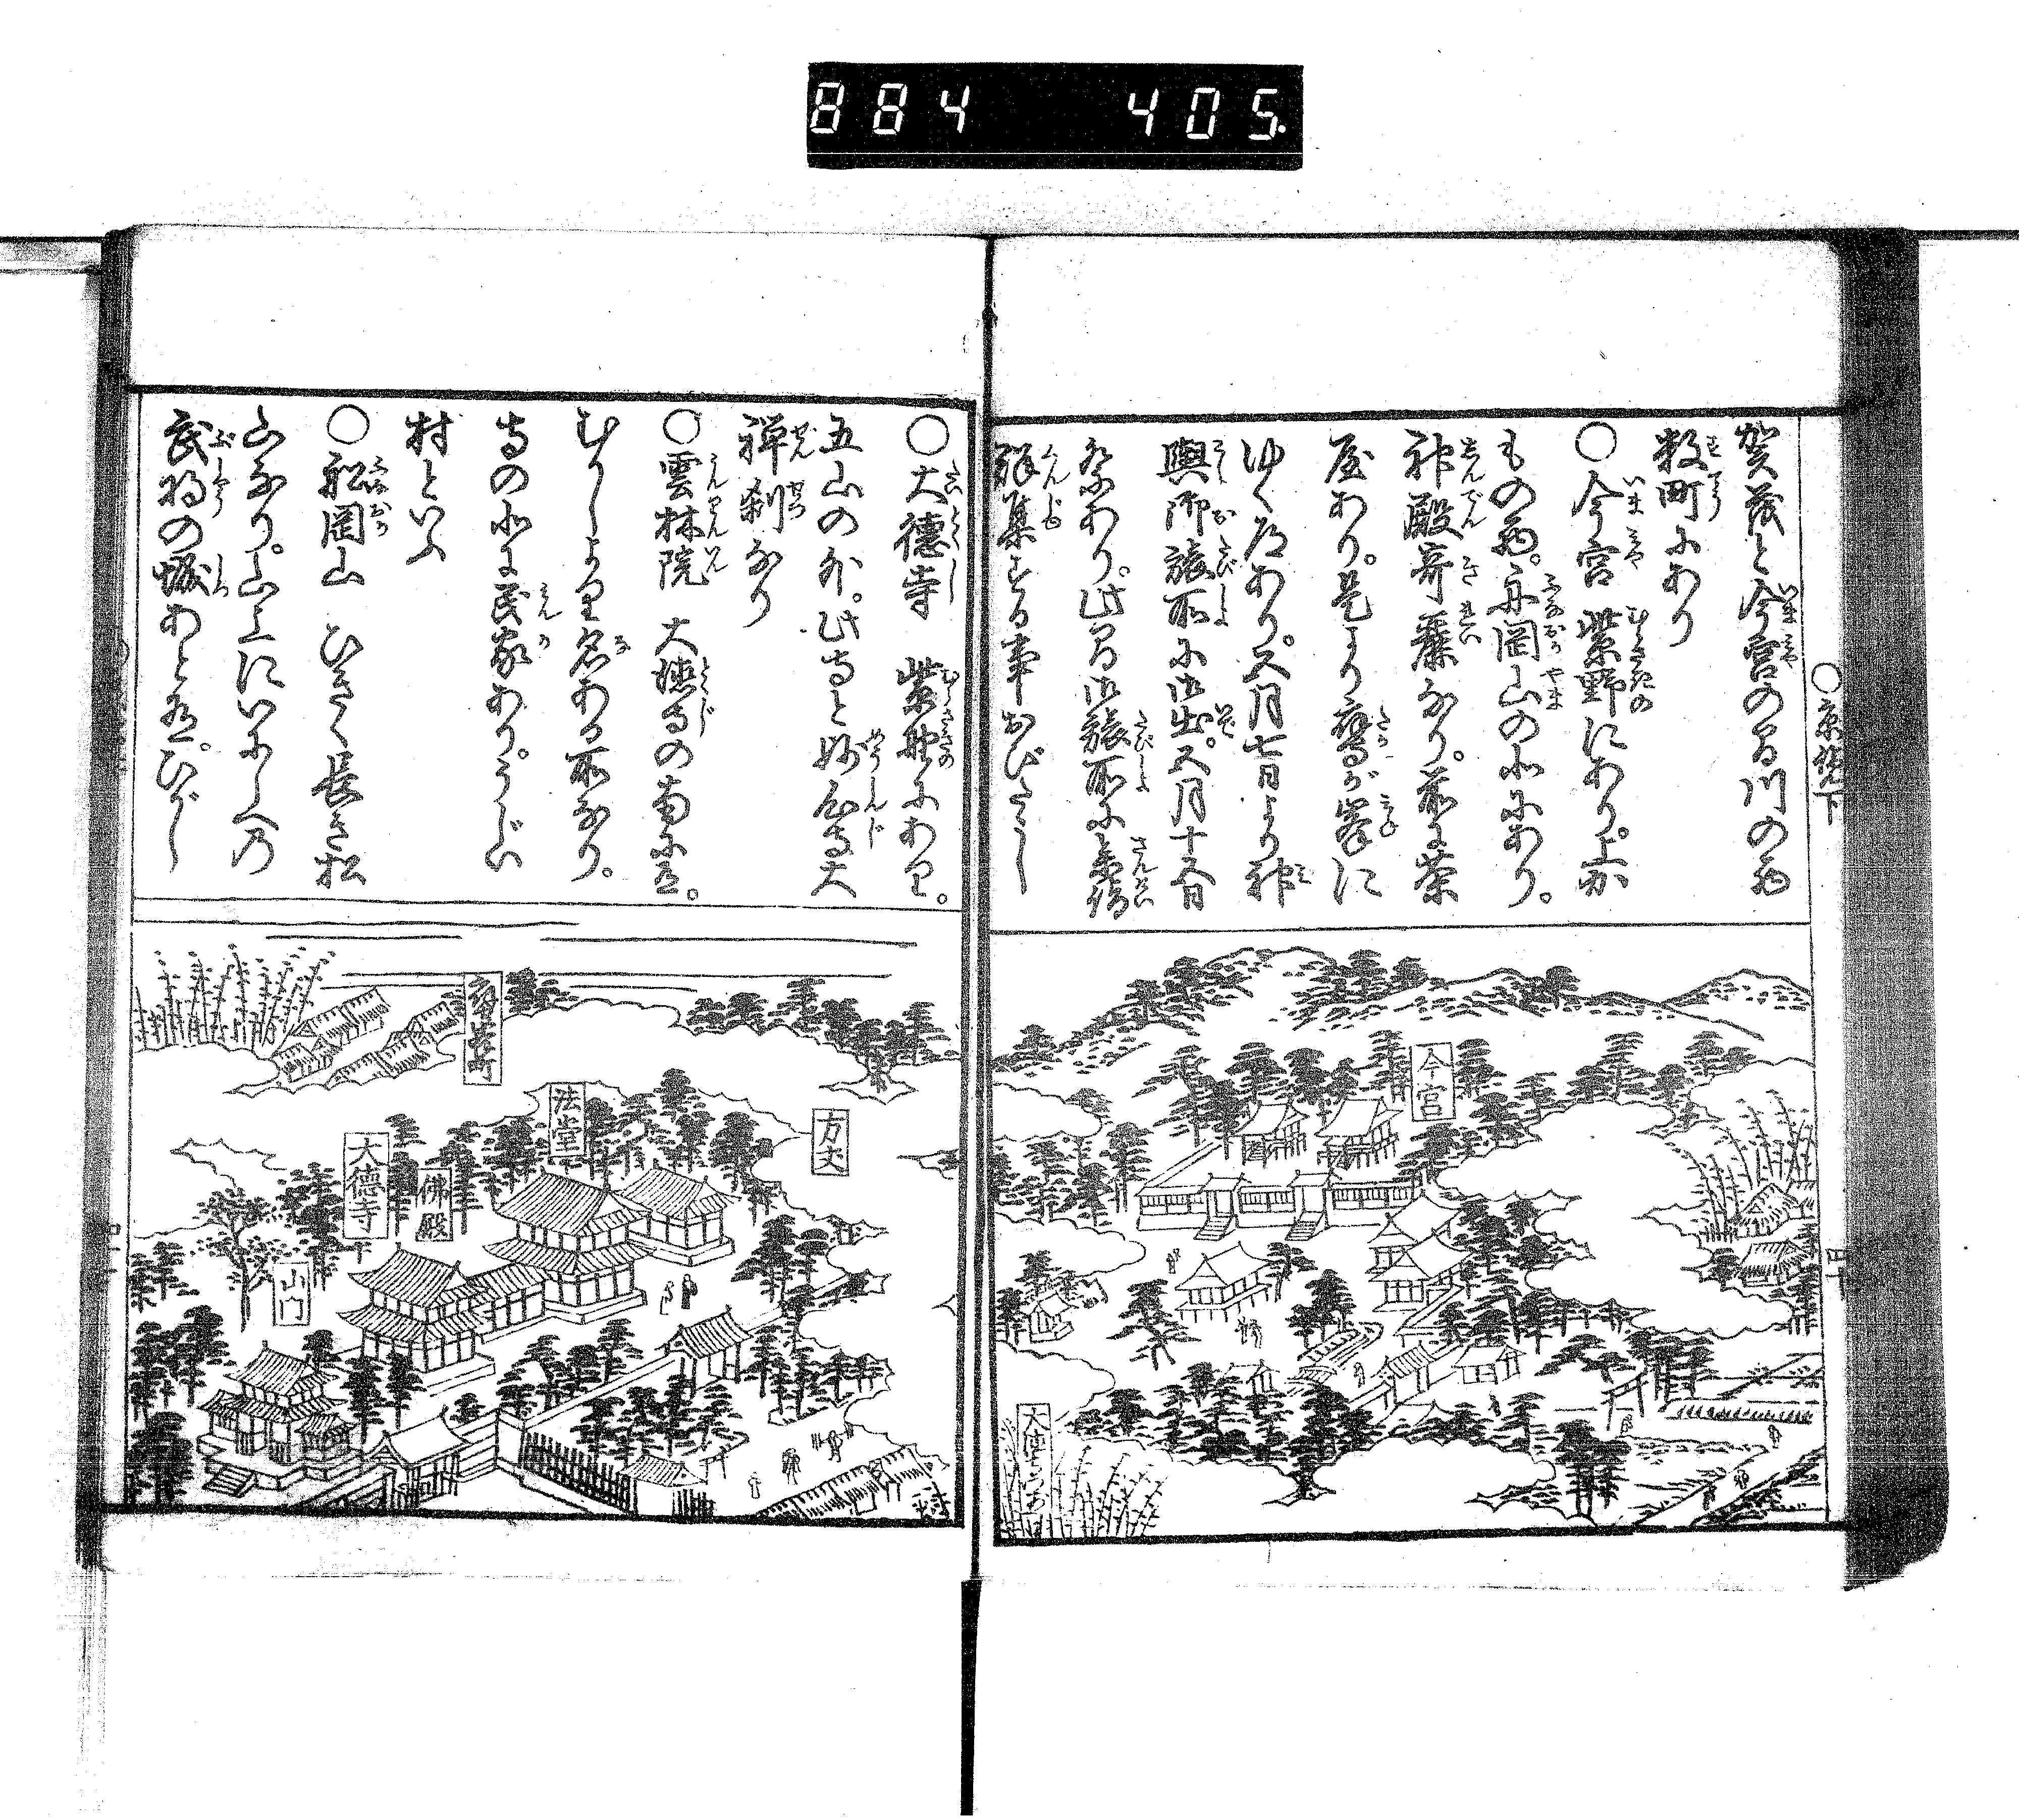 884 405
賀茂と今宮の間川の西
数町にあり
○今宮 紫野にあり。上加
もの西。舟岡山の北にあり。
神殿奇麗なり。前に茶
屋あり。是より鷹が峯に
ゆく道あり。五月七日より神
輿御旅所に御出。五月十五日
祭あり。此間御旅所に参詣
群集する事おびたゝし
○大徳寺 紫野にあり。
五山の外。此寺と妙心寺大
禅刹なり
○雲林院 大徳寺の南に有。
むかしより名ある所なり。
寺の北に民家あり。うぢい
村といふ
○船岡山 ひきく長き松
山なり。山上にいにしへの
武将の城あと有。ひがし
今宮
方丈
法堂
佛殿
大徳寺
山門